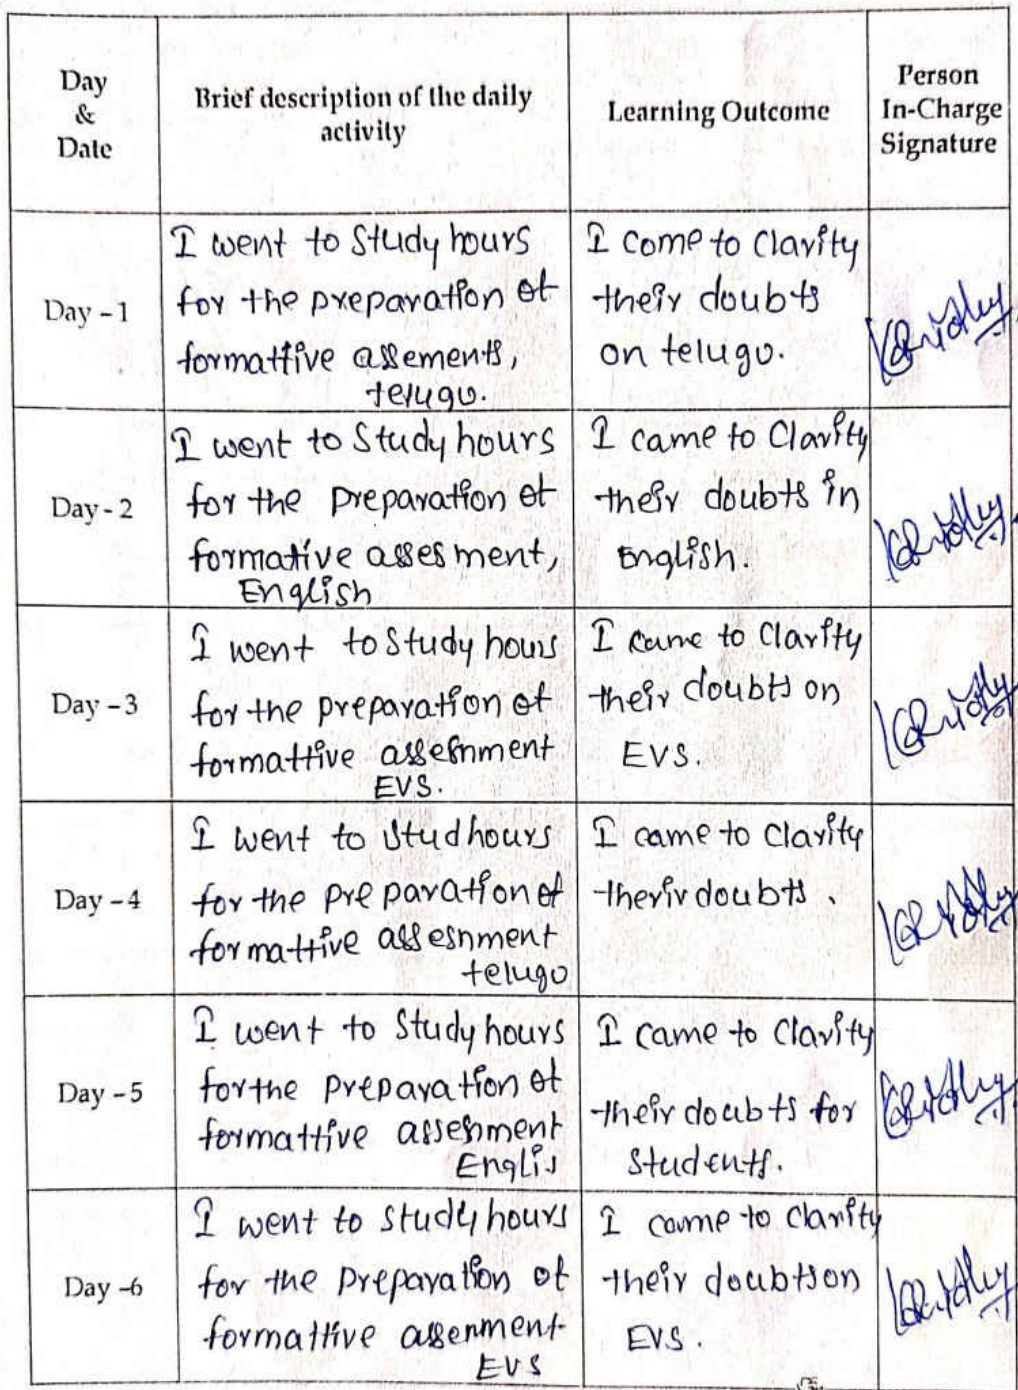 Day
&
Date
Brief description of the daily
activity
Learning Outcome
Person
In-Charge
Signature
Day - 1
I went to Study hours
for the preparation of
formattive assements,
telugu.
I come to Clarity
their doubts
on telugu.
Day - 2
I went to Study hours
for the preparation of
formative asses ment,
English
I came to Clarity
their doubts in
English.
Day - 3
I went to Study hours
for the preparation of
formattive assesnment
EVS.
I came to Clarity
their doubts on
EVS.
Day - 4
I went to Studhours
for the preparation of
formattive assesnment
telugu
I came to Clarity
therir doubts.
Day - 5
I went to Study hours
for the preparation of
formattive assesnment
Englis
I came to Clarity
their doubts for
Students.
Day -6
I went to study hours
for the preparation of
formattive assenment
EVS
I came to Clarity
their doubts on
EVS.